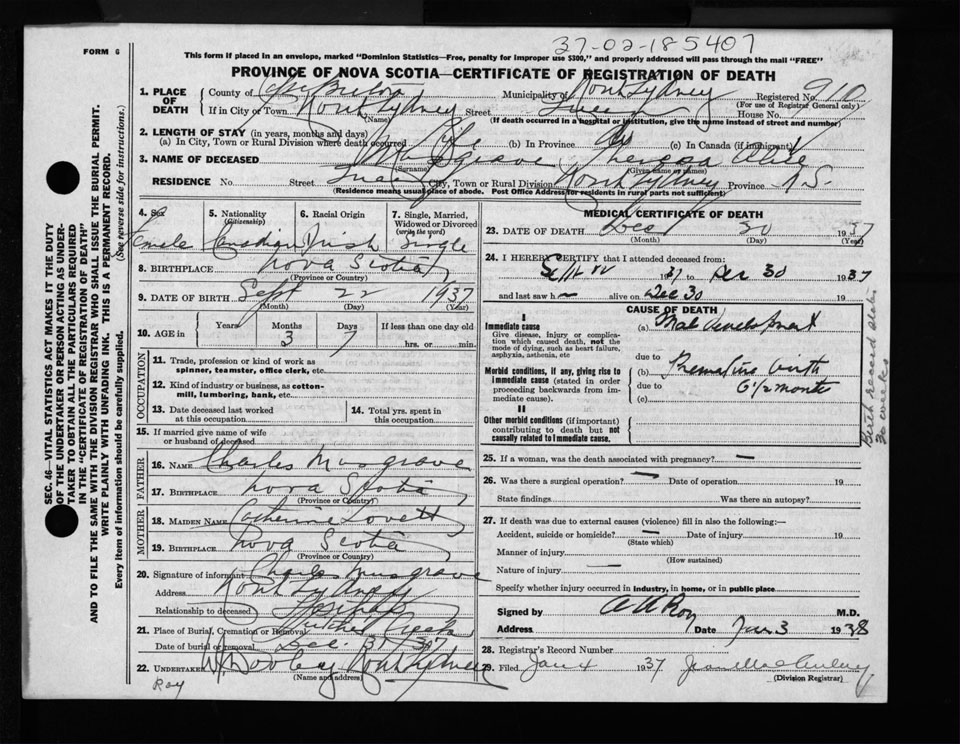 37-02-185407
FORM 6
This form if placed in an envelope, marked "Dominion Statistics—Free, penalty for improper use $300," and properly addressed will pass through the mail "FREE"
PROVINCE OF NOVA SCOTIA—CERTIFICATE OF REGISTRATION OF DEATH
1. PLACE OF DEATH
County of Municipality of North Sydney Registered No. 9110
(For use of Registrar General only)
If in City or Town North Sydney Street House No.
(Name) (If death occurred in a hospital or institution, give the name instead of street and number)
2. LENGTH OF STAY (in years, months and days)
(a) In City, Town or Rural Division where death occurred Life (b) In Province (c) In Canada (if immigrant)
3. NAME OF DECEASED Musgrave Theresa Alice
(Surname) (Given name or names)
RESIDENCE No. Street City, Town or Rural Division North Sydney Province N.S.
(Residence means usual place of abode. Post Office Address for residents in rural parts not sufficient)
4. Sex
Female
5. Nationality
(Citizenship)
Canadian
6. Racial Origin
Irish
7. Single, Married, Widowed or Divorced
(write the word)
Single
8. BIRTHPLACE Nova Scotia
(Province or Country)
9. DATE OF BIRTH Sept 22 1937
(Month) (Day) (Year)
10. AGE in Years Months Days If less than one day old
3 7 hrs. or min.
OCCUPATION
11. Trade, profession or kind of work as spinner, teamster, office clerk, etc.
12. Kind of industry or business, as cotton-mill, lumbering, bank, etc.
13. Date deceased last worked at this occupation
14. Total yrs. spent in this occupation
15. If married give name of wife or husband of deceased
FATHER
16. NAME Charles Musgrave
17. BIRTHPLACE Nova Scotia
(Province or Country)
MOTHER
18. MAIDEN NAME Catherine Lovett
19. BIRTHPLACE Nova Scotia
(Province or Country)
20. Signature of informant Charles Musgrave
Address North Sydney
Relationship to deceased
21. Place of Burial, Cremation or Removal
Date of burial or removal Dec 31 37
22. UNDERTAKER W Dooley North Sydney
(Name and address)
Roy
MEDICAL CERTIFICATE OF DEATH
23. DATE OF DEATH Dec 30 1937
(Month) (Day) (Year)
24. I HEREBY CERTIFY that I attended deceased from:
Sept 22 1937 to Dec 30 1937
and last saw h alive on Dec 30 19
CAUSE OF DEATH
I
Immediate cause
Give disease, injury or complication which caused death, not the mode of dying, such as heart failure, asphyxia, asthenia, etc
(a) Mal development
due to
Morbid conditions, if any, giving rise to immediate cause (stated in order proceeding backwards from immediate cause).
(b) Premature birth
due to 6 1/2 months
(c)
II
Other morbid conditions (if important) contributing to death but not causally related to immediate cause.
Birth record states
30 weeks
25. If a woman, was the death associated with pregnancy?
26. Was there a surgical operation? Date of operation 19
State findings Was there an autopsy?
27. If death was due to external causes (violence) fill in also the following:—
Accident, suicide or homicide? Date of injury 19
(State which)
Manner of injury
(How sustained)
Nature of injury
Specify whether injury occurred in industry, in home, or in public place
Signed by A U Roy M.D.
Address Date Jan 3 1938
28. Registrar's Record Number
29. Filed Jan 4 1937
(Division Registrar)
SEC. 46—VITAL STATISTICS ACT MAKES IT THE DUTY
OF THE UNDERTAKER OR PERSON ACTING AS UNDER-
TAKER TO OBTAIN ALL THE PARTICULARS REQUIRED
IN THE "CERTIFICATE OF REGISTRATION OF DEATH"
AND TO FILE THE SAME WITH THE DIVISION REGISTRAR WHO SHALL ISSUE THE BURIAL PERMIT.
WRITE PLAINLY WITH UNFADING INK. THIS IS A PERMANENT RECORD.
Every item of information should be carefully supplied. (See reverse side for instructions.)